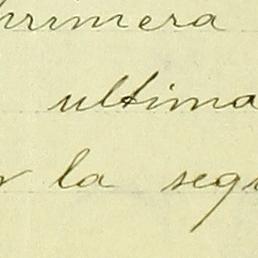 primera
ultima
la segu